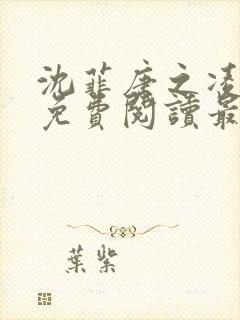 沈菲唐之凌
免費閱讀最
葉紫